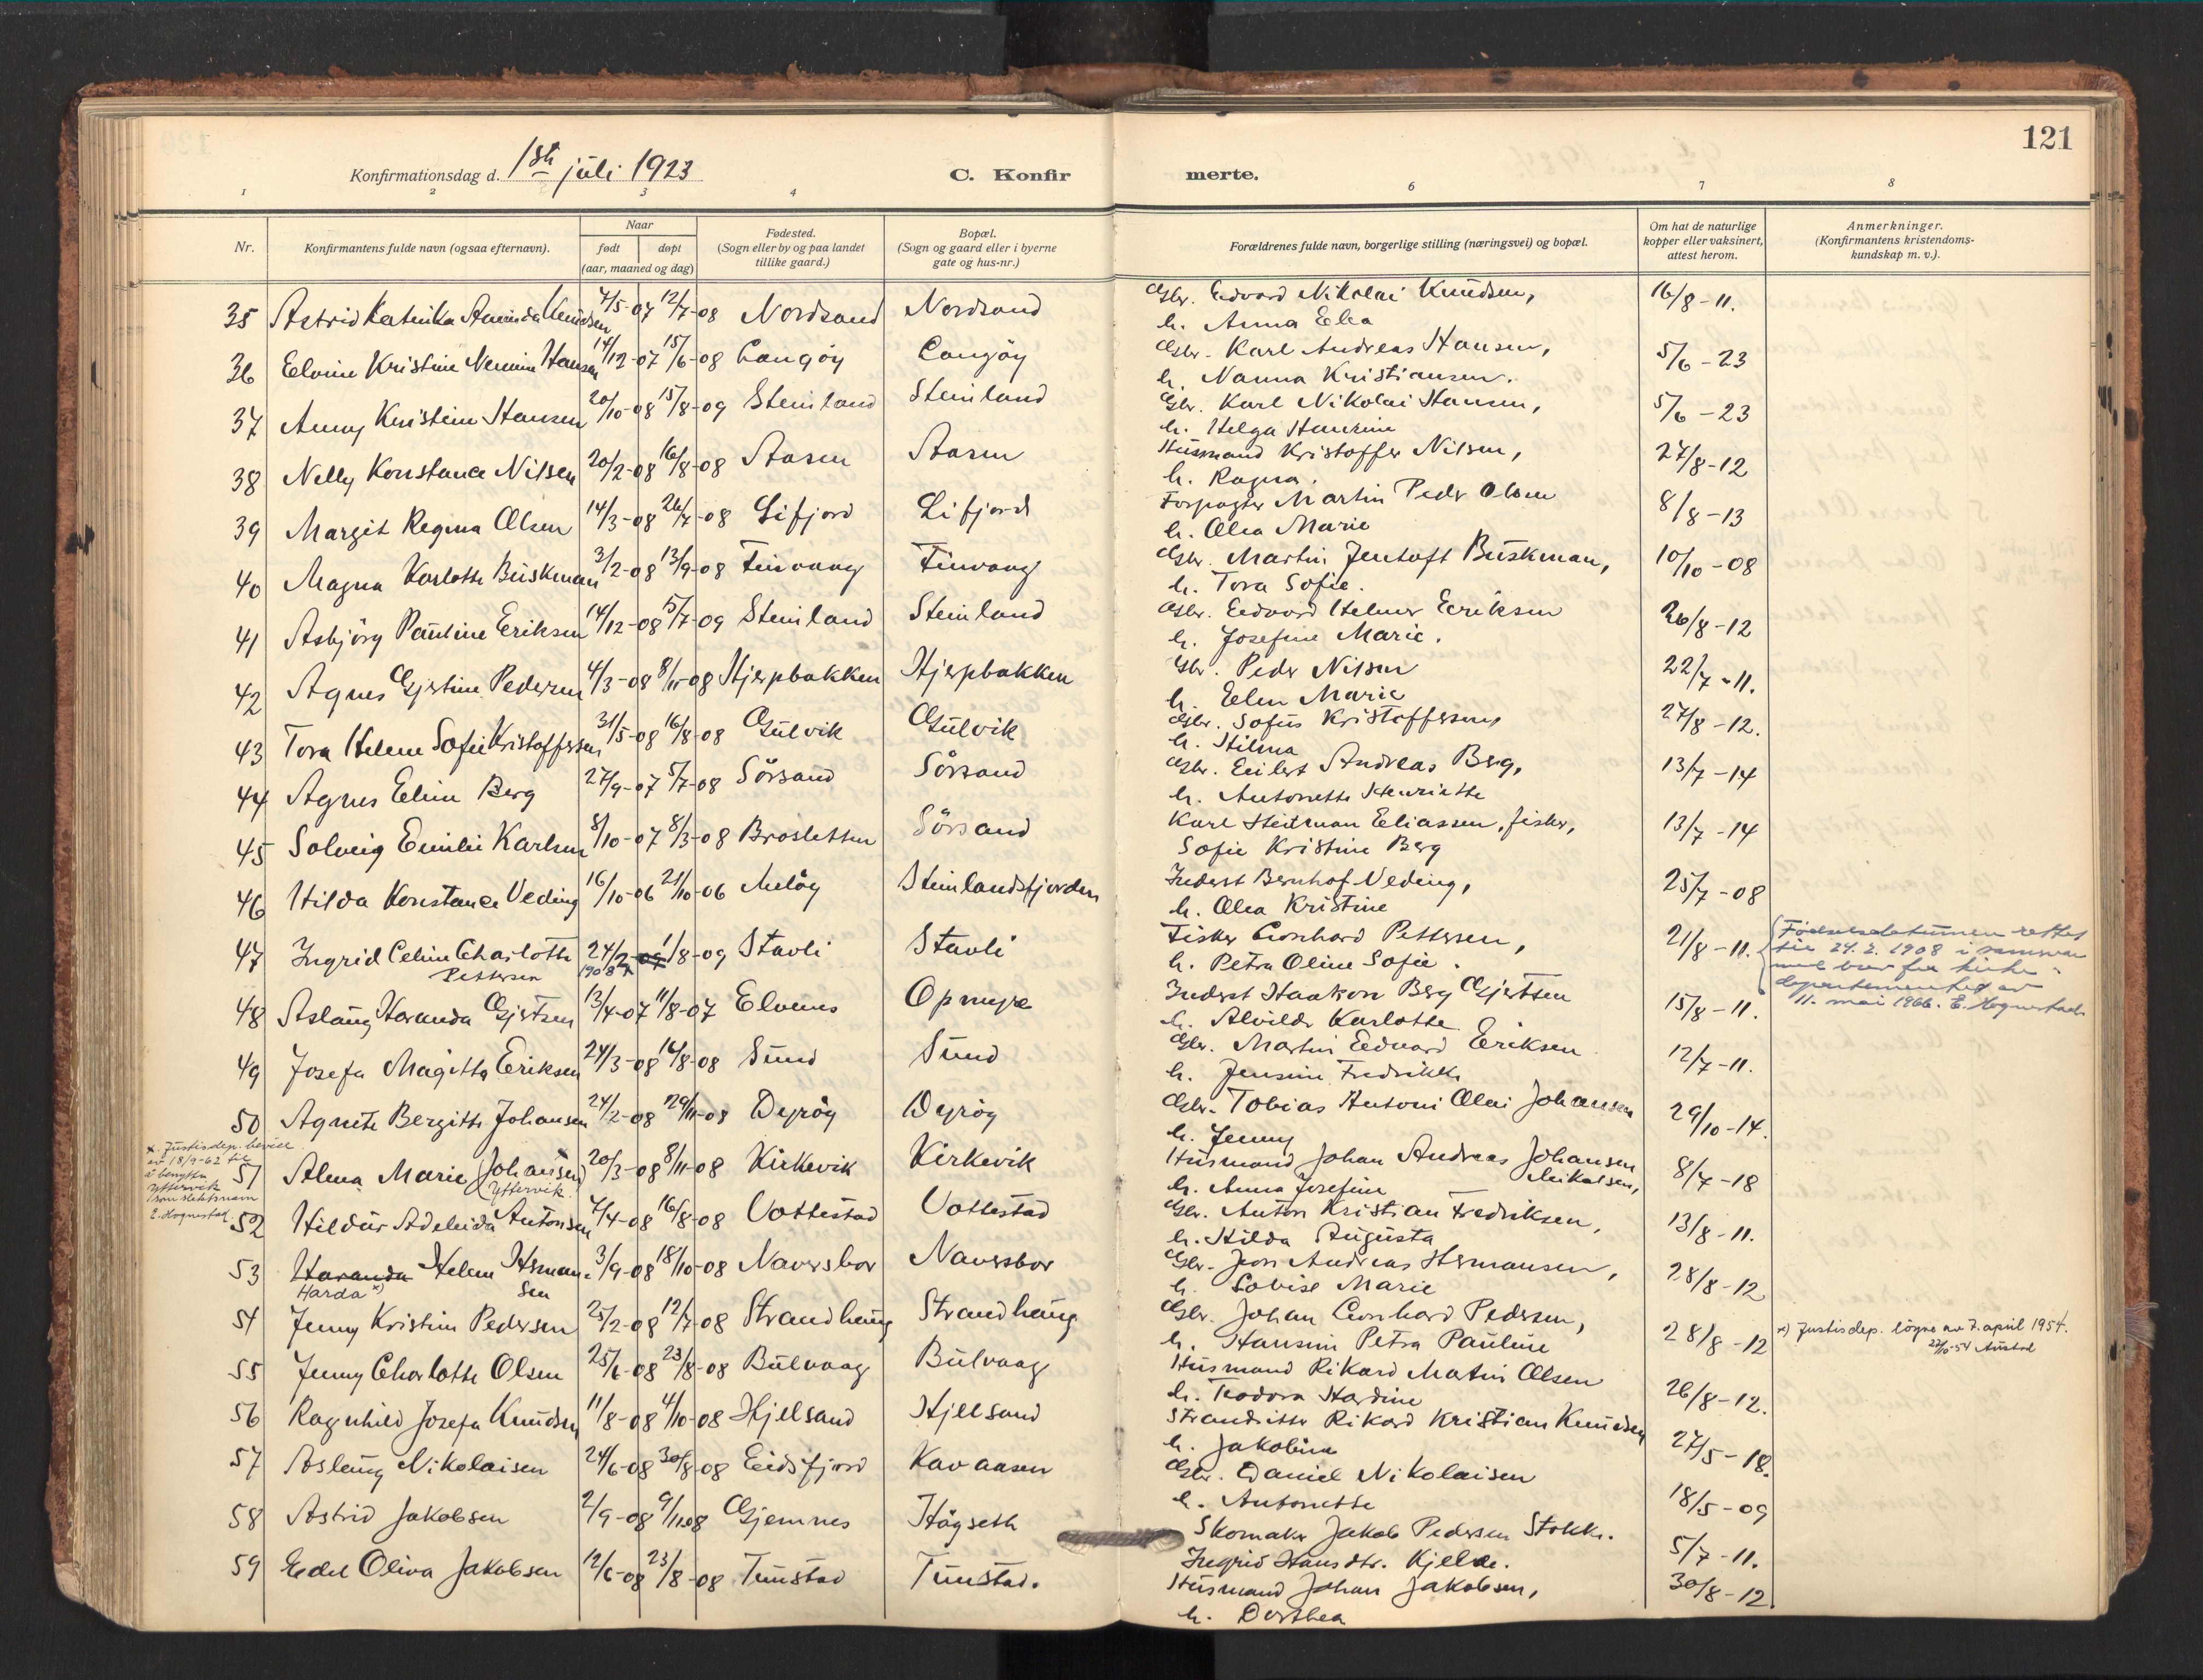 121
Konfirmationsdag d. 1ste juli 1923
C. Konfir
merte.
1 2 3 4 6 7 8
Nr.
Konfirmantens fulde navn (ogsaa efternavn).
Naar
født døpt
(aar, maaned og dag)
Fødested.
(Sogn eller by og paa landet
tillike gaard.)
Bopæl.
(Sogn og gaard eller i byerne
gate og hus-nr.)
Forældrenes fulde navn, borgerlige stilling (næringsvei) og bopæl.
Om hat de naturlige
kopper eller vaksinert,
attest herom.
Anmerkninger.
(Konfirmantens kristendoms-
kundskap m. v.).
35 Astrid Katinka Knudsen 7/5-07 12/7-08 Nordsand Nordsand
Gbr. Edvard Nikolai Knudsen, 16/8-11.
h. Anna Elea
36 Elvine Kristine Hansen 14/12-07 15/6-08 Langöy Langöy
Gbr. Karl Andreas Hansen, 5/6-23
h. Nanna Kristiansen.
37 Anny Kristine Hansen 20/10-08 15/8-09 Steinland Steinland
Gbr. Karl Nikolai Hansen, 5/6-23
h. Helga Hansine
38 Nelly Konstance Nilsen 20/2-08 16/8-08 Aasen Aasen
Husmand Kristoffer Nilsen, 27/8-12
h. Ragna.
39 Margit Regina Olsen 14/3-08 26/7-08 Lifjord Lifjord
Forpagter Martin Peder Olsen 8/8-13
h. Olea Marie
40 Magna Karlotte Buskman 3/2-08 13/9-08 Finvaag Finvaag
Gbr. Martin Jentoft Buskman, 10/10-08
h. Tora Sofie.
41 Asbjörg Pauline Eriksen 14/12-08 5/7-09 Steinland Steinland
Gbr. Edvard Helmer Eriksen 26/8-12
h. Josefine Marie.
42 Agnes Gjertine Pedersen 4/3-08 8/11-08 Hjerpbakken Hjerpbakken
Gbr. Peder Nilsen 22/7-11.
h. Elen Marie
43 Tora Helene Sofie Kristoffersen 31/5-08 16/8-08 Gulvik Gulvik
Gbr. Sofus Kristoffersen, 27/8-12.
h. Hilma
44 Agnes Eline Berg 27/9-07 5/7-08 Sörsand Sörsand
Gbr. Eilert Andreas Berg, 13/7-14
h. Antonette Henriette
45 Solveig Emilie Karlsen 8/10-07 8/3-08 Brosletten Sörsand
Karl Heitman Eliassen, fisker, 13/7-14
Sofie Kristine Berg
46 Hilda Konstance Veding 16/10-06 21/10-06 Melöy Steinlandsfjorden
Inderst Bernhof Veding, 25/7-08
h. Olea Kristine
47 Ingrid Celine Charlotte 24/2-09 1/8-09 Stavli Stavli
Pettersen 1908
Fisker Leonhard Pettersen, 21/8-11.
h. Petra Oline Sofie.
Födselsdatumen rettet
til 24. 2. 1908 i samsvar
med brev fra kirke-
departementet av
11. mai 1966. E. Hognestad
48 Aslaug Haranda Gjertsen 13/4-07 11/8-07 Elvenes Opmyre
Inderst Haakon Berg Gjertsen 15/8-11.
h. Alvilde Karlotte
49 Josefa Magitta Eriksen 24/3-08 16/8-08 Sund Sund
Gbr. Martin Edvard Eriksen 12/7-11.
h. Jensine Fredrikke
50 Agnete Bergitte Johansen 24/2-08 29/11-08 Dyröy Dyröy
Gbr. Tobias Antoni Olai Johansen 29/10-14.
h. Jenny
x. Justisdep. bevill.
av 18/9-62 til
å benytte
Yttervik
som slektsnavn
E. Hognestad.
51 Alma Marie Johansen x 20/3-08 8/11-08 Kirkevik Kirkevik
Yttervik
Husmand Johan Andreas Johansen 8/7-18
h. Anna Josefine Mikalsen,
52 Hildur Adeleida Antonsen 7/4-08 16/8-08 Vottestad Vottestad
Gbr. Anton Kristian Fredriksen, 13/8-11.
h. Hilda Augusta
53 Haranda Helene Herman- 3/9-08 18/10-08 Naversbor Naversbor
Harda x) sen
Gbr. Jon Andreas Hermansen, 28/8-12
h. Lovise Marie
54 Jenny Kristine Pedersen 25/2-08 12/7-08 Strandheug Strandheug
Gbr. Johan Leonhard Pedersen, 28/8-12
h. Hansine Petra Pauline
x) Justisdep. löyve av 7. april 1954.
55 Jenny Charlotte Olsen 25/6-08 23/8-08 Bulvaag Bulvaag
Husmand Rikard Matin Olsen 26/8-12.
h. Teodora Hardine
56 Ragnhild Josefa Knudsen 11/8-08 4/10-08 Hjellsand Hjellsand
Strandsitter Rikard Kristian Knudsen 27/5-18.
h. Jakobine
57 Aslaug Nikolaisen 24/6-08 30/8-08 Eidsfjord Kavaasen
Gbr. Daniel Nikolaisen 18/5-09
h. Antonette
58 Astrid Jakobsen 2/9-08 9/11-08 Gjemnes Högseth
Skomaker Jakob Pedersen Stokk. 5/7-11.
Ingrid Hansdtr. Kjelde.
59 Edel Oliva Jakobsen 12/6-08 23/8-08 Tunstad Tunstad.
Husmand Johan Jakobsen, 30/8-12
h. Dorthea